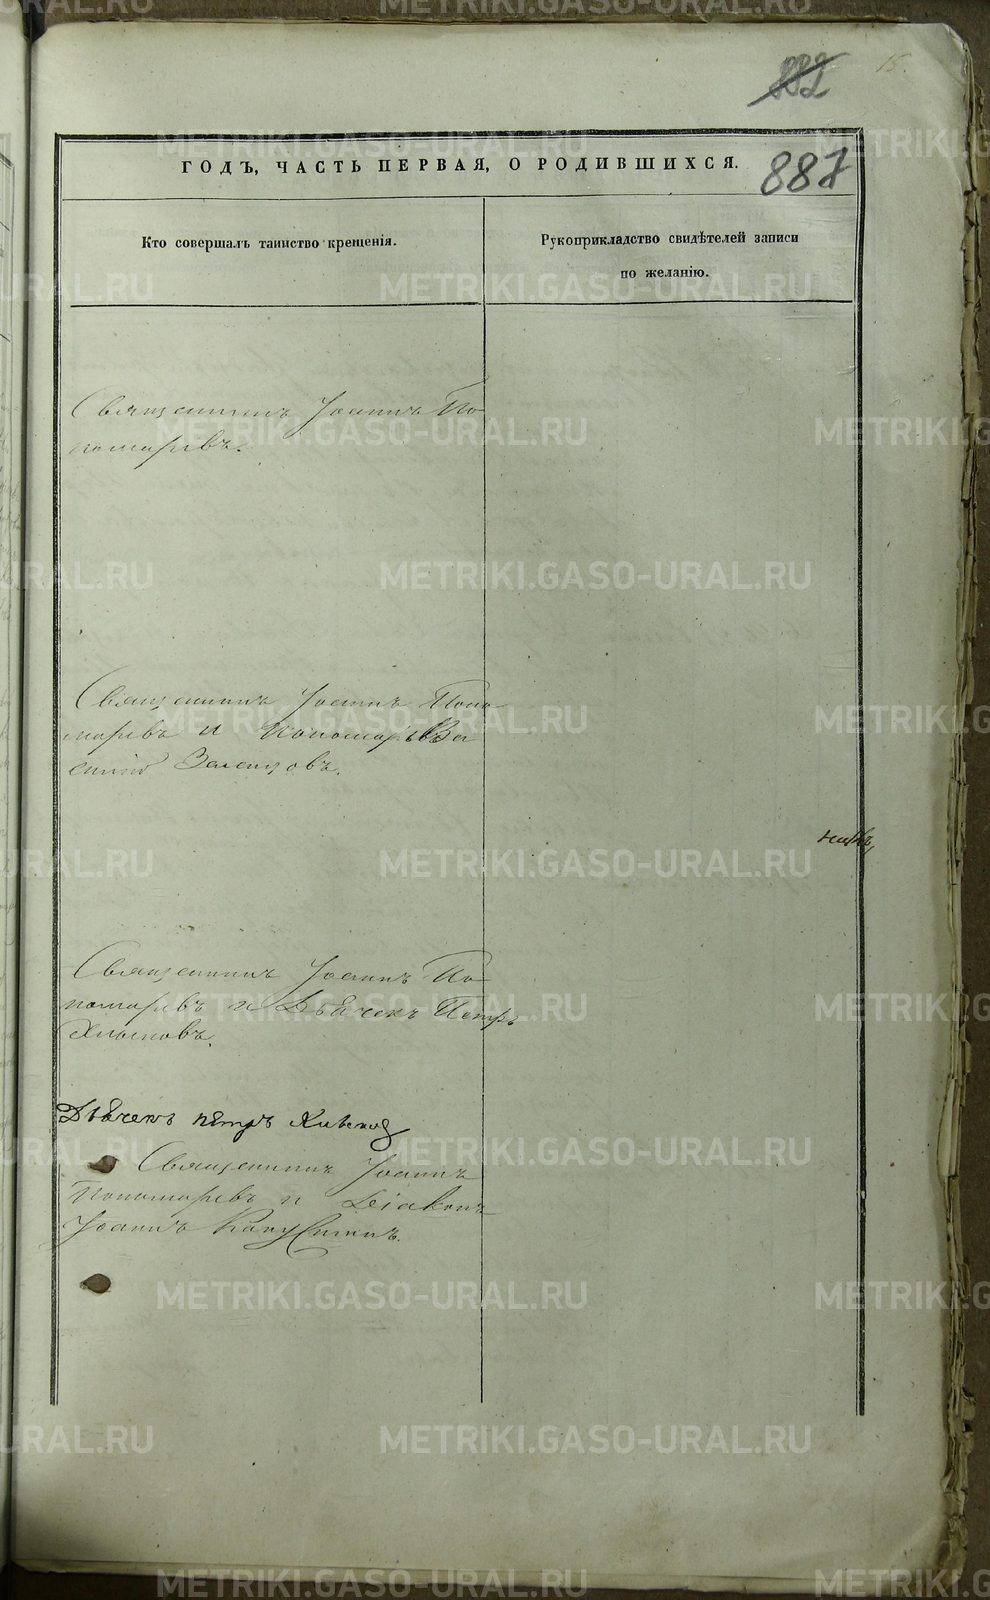 15.
882
ГОДЪ, ЧАСТЬ ПЕРВАЯ, О РОДИВШИХСЯ.
887
Кто совершалъ таинство крещенія.
Рукоприкладство свидѣтелей записи
по желанію.
Священникъ Іоаннъ По
номаревъ.
Священникъ Іоаннъ Поно
маревъ и Пономарь Ва
силій
Священникъ Іоаннъ По
номаревъ и Дьячекъ Петръ
Хлыновъ.
Дьячекъ петръ
Священникъ Іоаннъ
Пономаревъ и Діаконъ
Іоаннъ Капустинъ.
METRIKI.GASO-URAL.RU